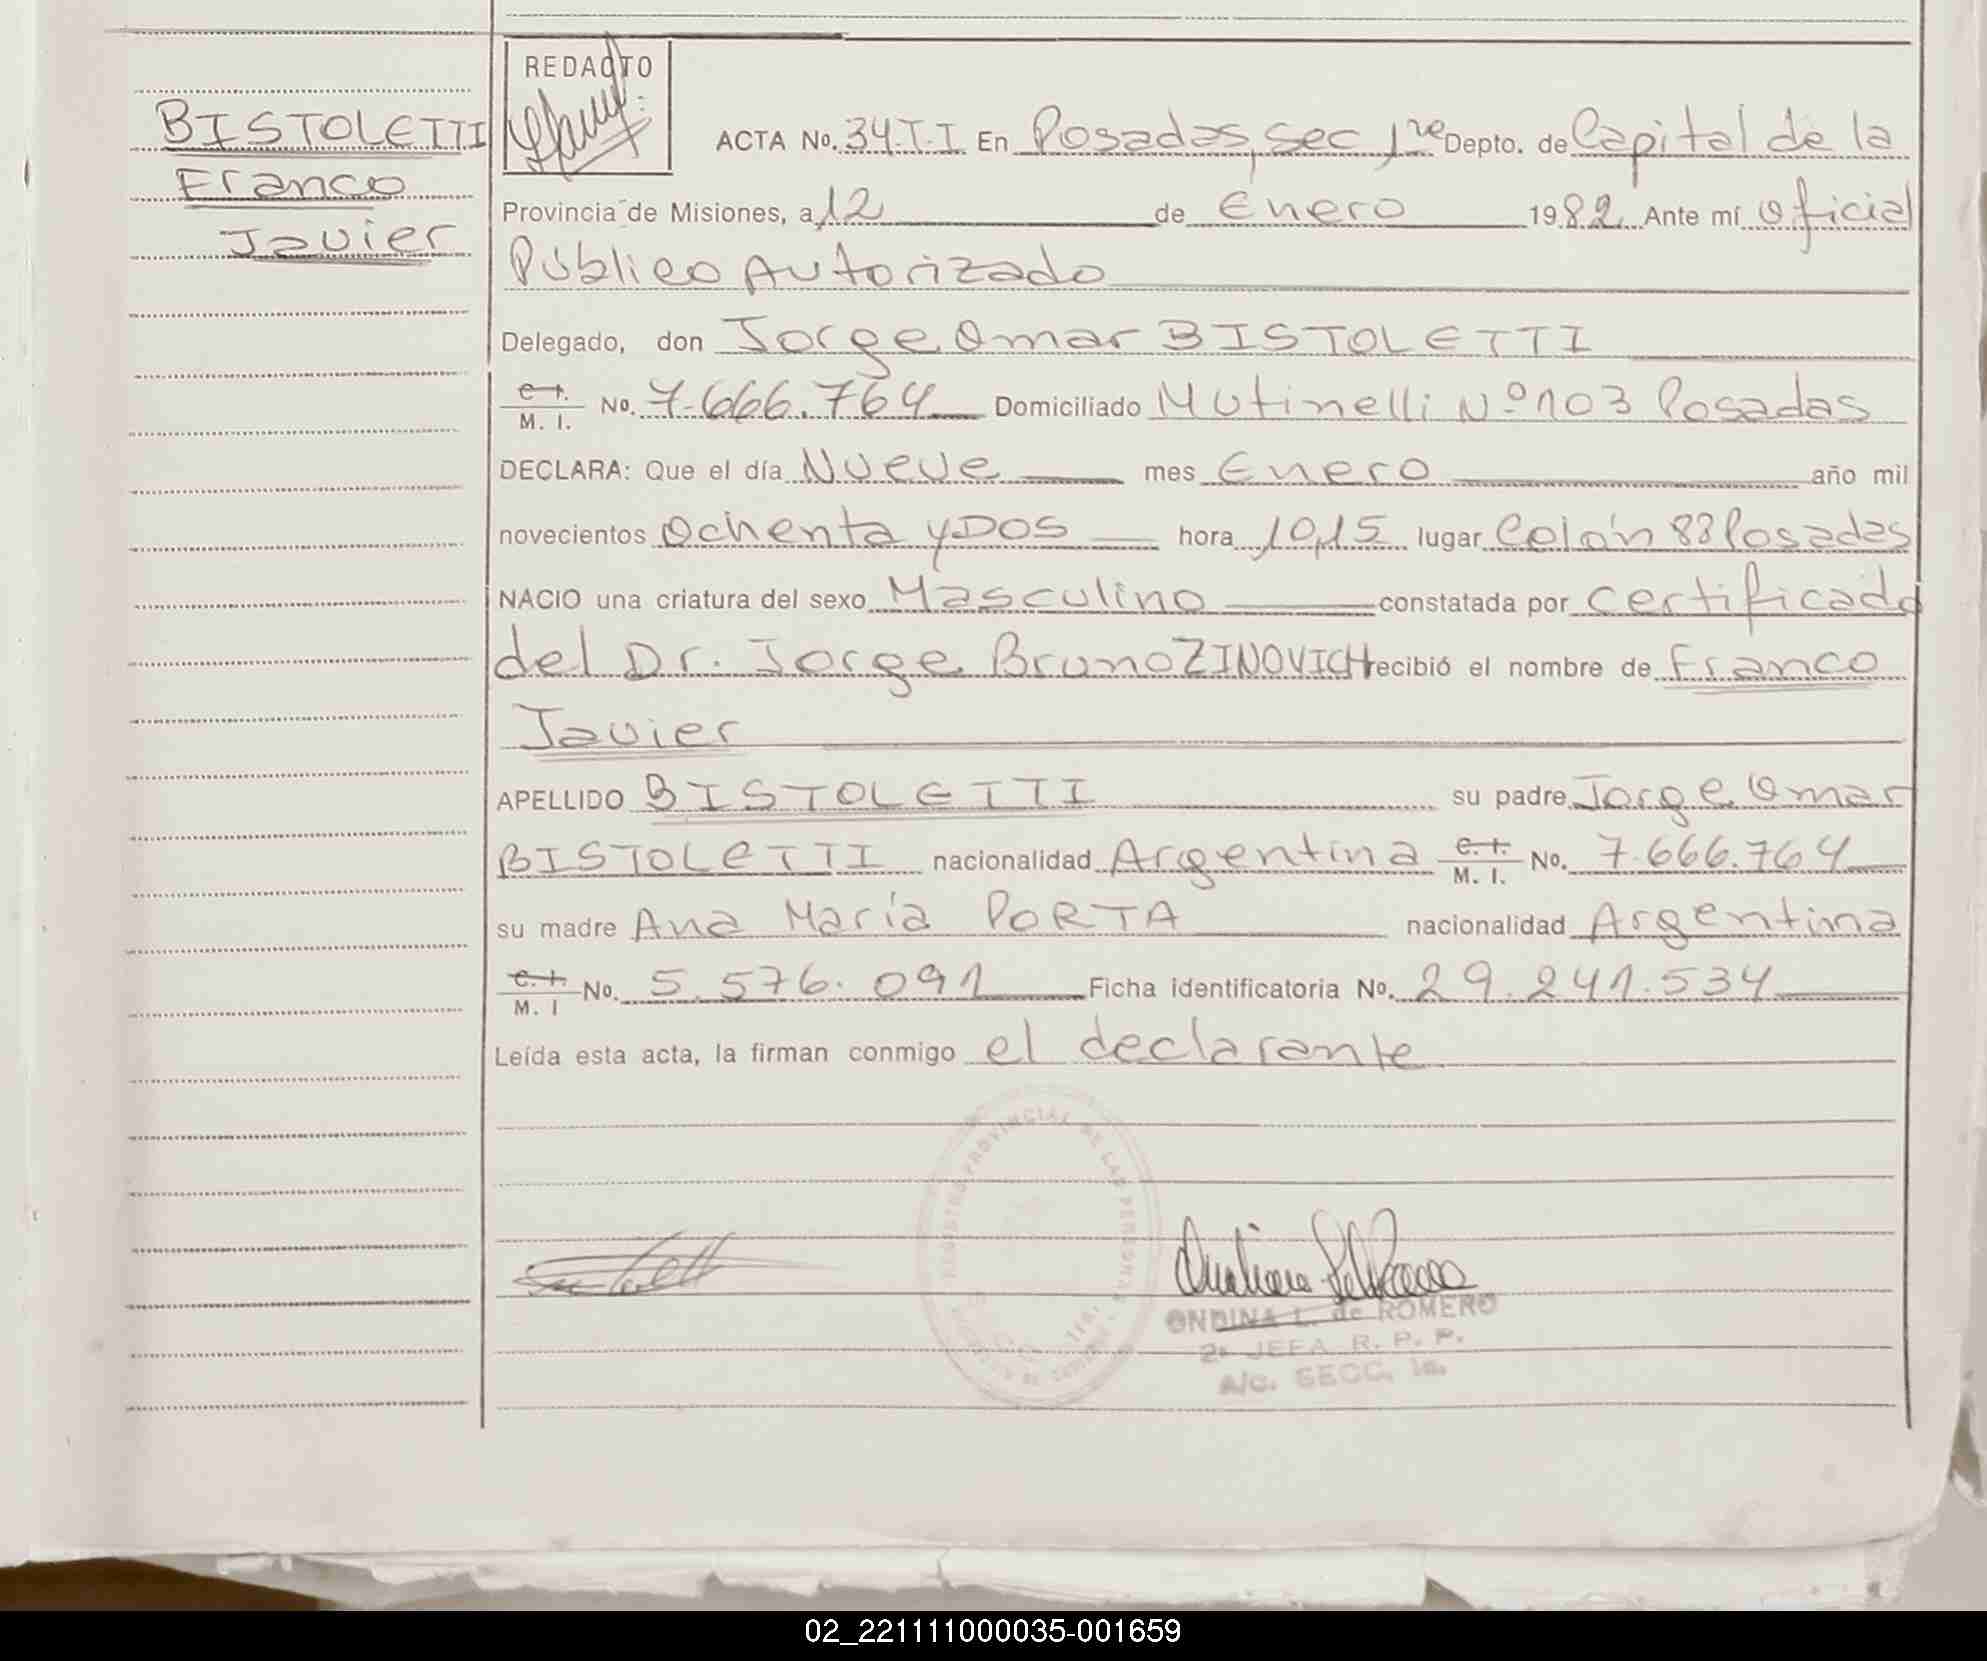 BISTOLETTI
Franco
Javier
REDACTO
ACTA No. 34.T.I En Posadas, Sec 1ra Depto. de Capital de la
Provincia de Misiones, a 12 de Enero 1982 Ante mí Oficial
Público Autorizado
Delegado, don Jorge Omar BISTOLETTI
C. I. M. I. No. 7.666.764 Domiciliado Mutinelli Nº 103 Posadas
DECLARA: Que el día Nueve mes Enero año mil
novecientos Ochenta y DOS hora 10,15 lugar Colón 88 Posadas
NACIO una criatura del sexo Masculino constatada por certificado
del Dr. Jorge Bruno ZINOVICH recibió el nombre de Franco
Javier
APELLIDO BISTOLETTI su padre Jorge Omar
BISTOLETTI nacionalidad Argentina C. I. M. I. No. 7.666.764
su madre Ana María PORTA nacionalidad Argentina
C. I. M. I No. 5.576.091 Ficha identificatoria No. 29.241.534
Leída esta acta, la firman conmigo el declarante
REGISTRO PROVINCIAL DE LAS PERSONAS
ONDINA L. de ROMERO
2a JEFA R. P. P.
A/C. SECC. 1a.
02_221111000035-001659